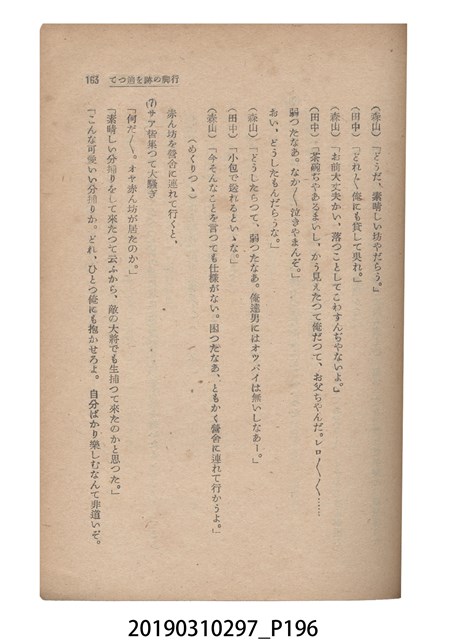 163　てつ追を跡の興行
（森山）「どうだ、素晴しい坊やだらう。」
（田中）「どれ〳〵俺にも貸して呉れ。」
（森山）「お前大丈夫かい、落つことしてこわすんぢやないよ。」
（田中）「茶碗ぢやあるまいし、かう見えたつて俺だつて、お父ちやんだ。レロ〳〵〳〵……
弱つたなあ。なか〳〵泣きやまんぞ。」
おい、どうしたもんだらうな。」
（森山）「どうしたらつて、弱つたなあ。俺達男にはオツパイは無いしなあー。」
（田中）「小包で送れるといゝな。」
（森山）「今そんなことを言つても仕様がない。困つたなあ、ともかく營舍に連れて行かうよ。」
（めくりつゝ）
赤ん坊を營舍に連れて行くと、
(7)サア皆集つて大騒ぎ
「何だ〳〵。オヤ赤ん坊が居たのか。」
「素晴しい分捕りをして来たつて云ふから、敵の大將でも生捕つて来たのかと思つた。」
「こんな可愛いい分捕りか。どれ、ひとつ俺にも抱かせろよ。自分ばかり樂しむなんて非道いぞ。
20190310297_P196